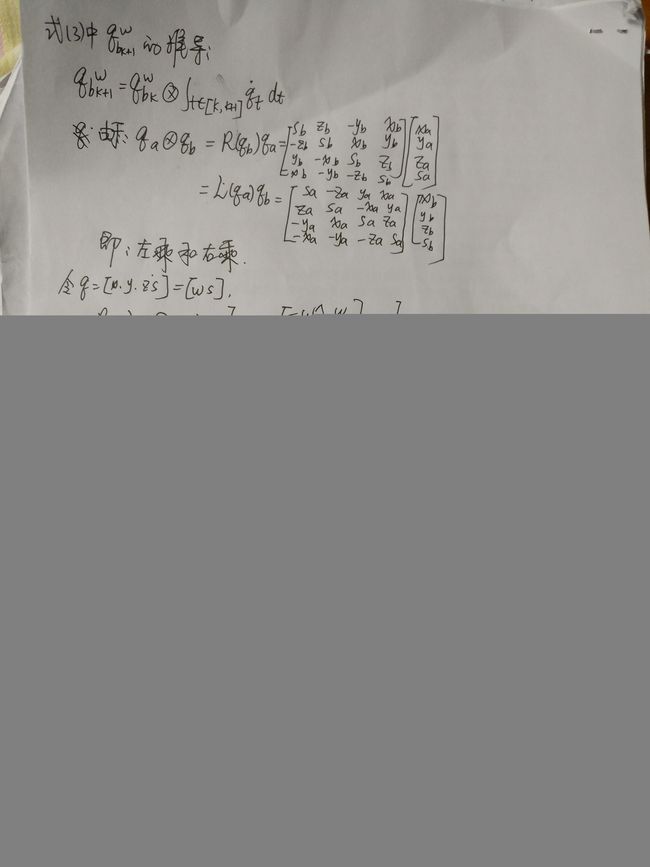 式(3)中 q_{bk+1}^w 的推导:
q_{bk+1}^w = q_{bk}^w ⊗ ∫_{t∈[k,k+1]} q̇_t dt
由于: q_a ⊗ q_b = R(q_b) q_a = [s_b z_b -y_b x_b; -z_b s_b x_b y_b; y_b -x_b s_b z_b; -x_b -y_b -z_b s_b] [x_a; y_a; z_a; s_a]
= L(q_a) q_b = [s_a -z_a y_a x_a; z_a s_a -x_a y_a; -y_a x_a s_a z_a; -x_a -y_a -z_a s_a] [x_b; y_b; z_b; s_b]
即: 左乘和右乘.
令 q = [x. y. z s] = [w s].